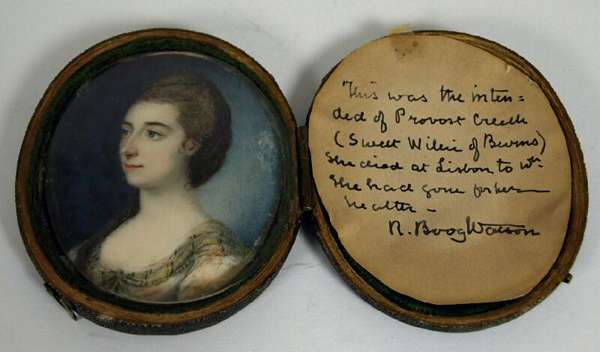 This was the inten=
ded of Provost Creech
(Sweet Willie of Burns)
She died at Lisbon to wh.
She had gone for her
health –
R. Boog Watson